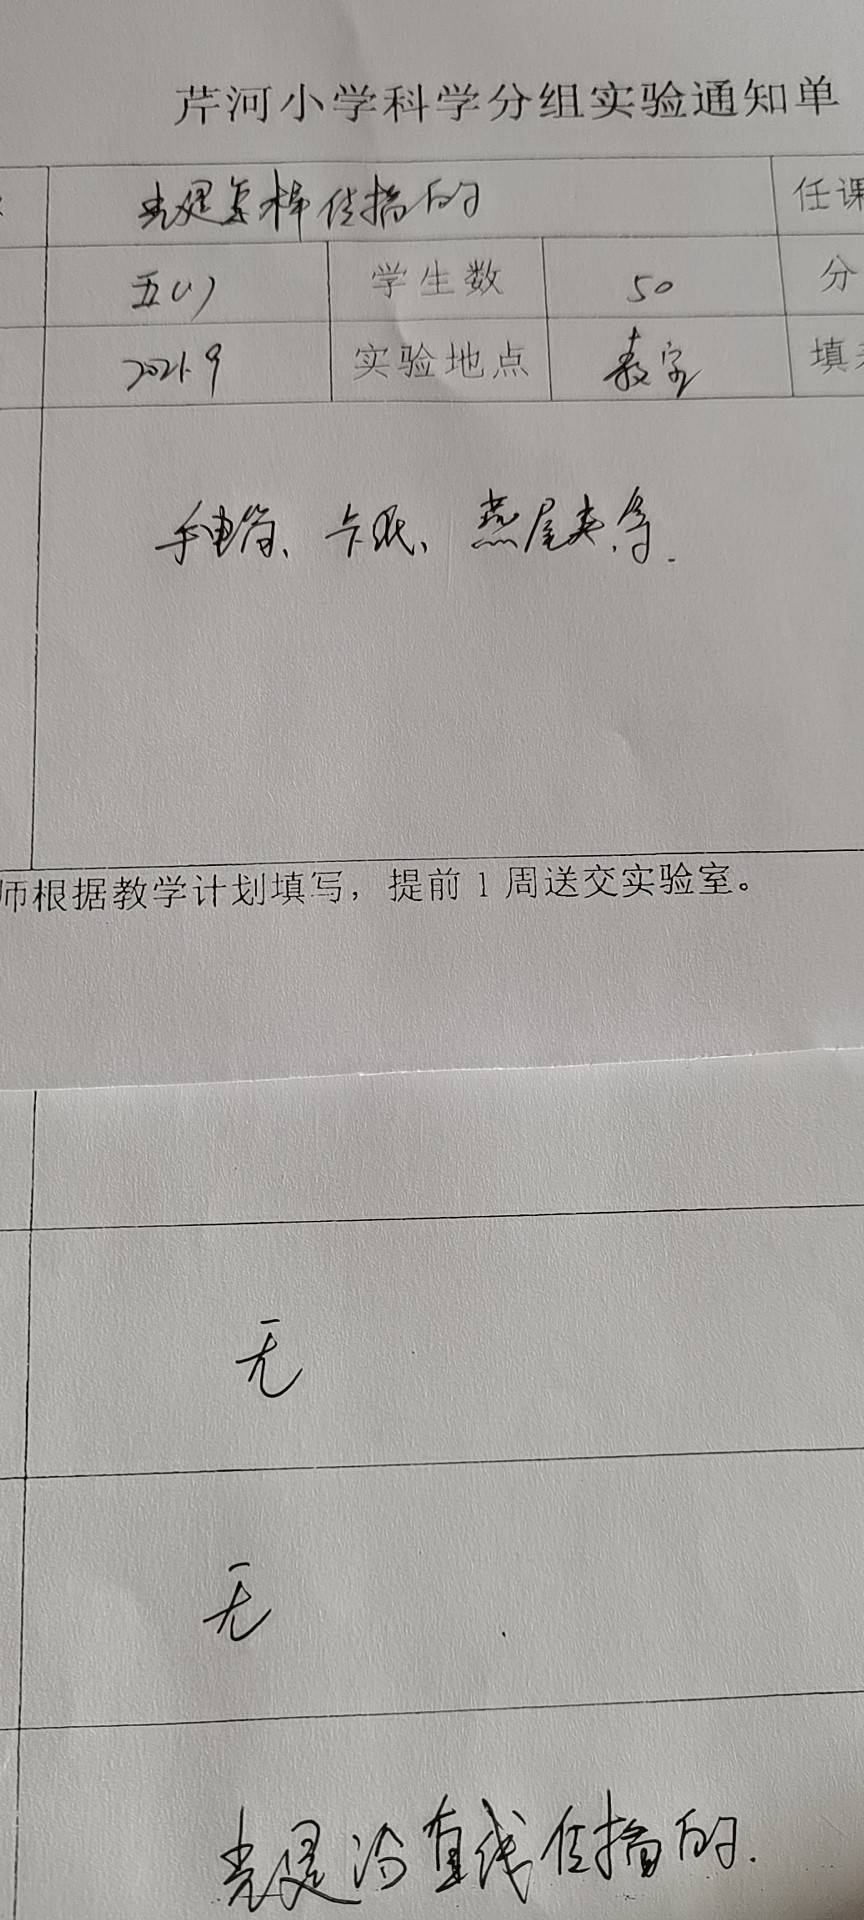 芹河小学科学分组实验通知单
光是怎样传播的 任课
五(1) 学生数 50 分
2021.9 实验地点 教室 填
手电筒、卡纸、燕尾夹等.
师根据教学计划填写，提前1周送交实验室。
无
无
光是沿直线传播的.